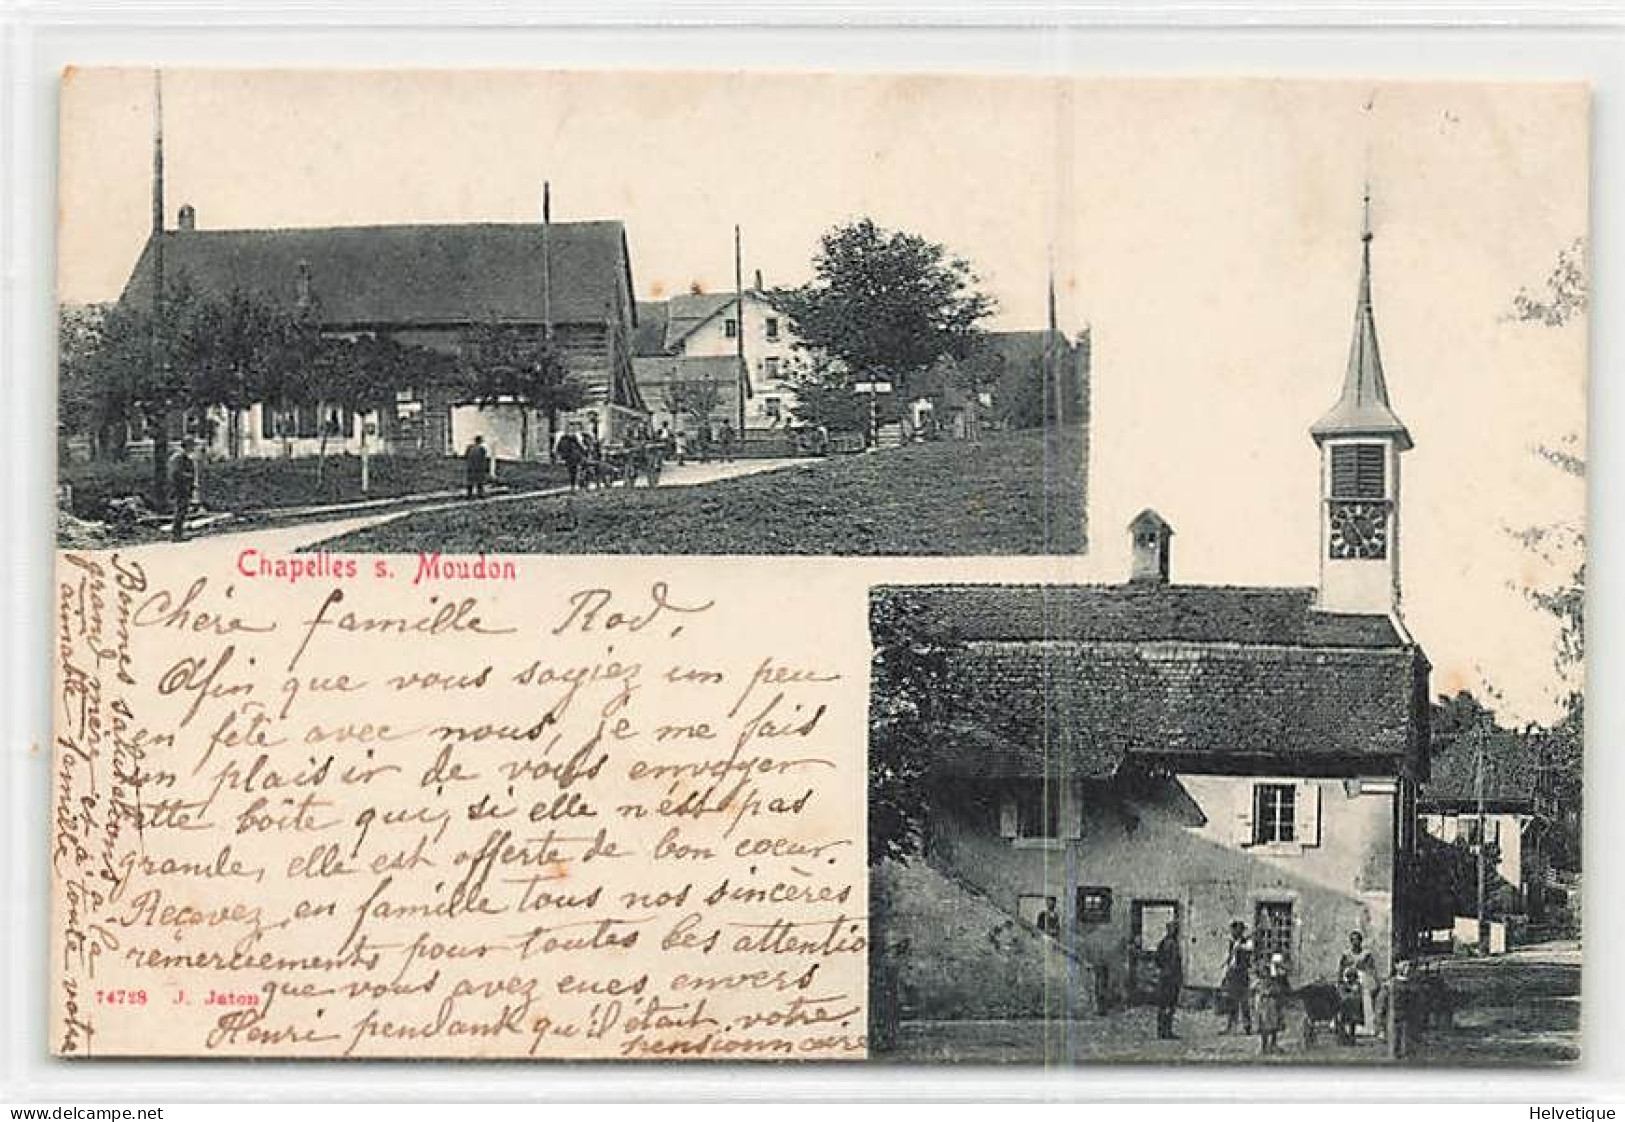 Chapelles s. Moudon
Chère famille Rod,
Afin que vous soyiez un peu
en fête avec nous, je me fais
un plaisir de vous envoyer
cette boîte qui, si elle n'est pas
grande, elle est offerte de bon coeur.
Reçevez, en famille tous nos sincères
remerciements pour toutes les attentio
que vous avez eues envers
Henri pendant qu'il était votre
pensionnaire
74728 J. Jaton
Bonnes salutations à la
grand mère et à toute votre
aimable famille
Helvetique
www.delcampe.net